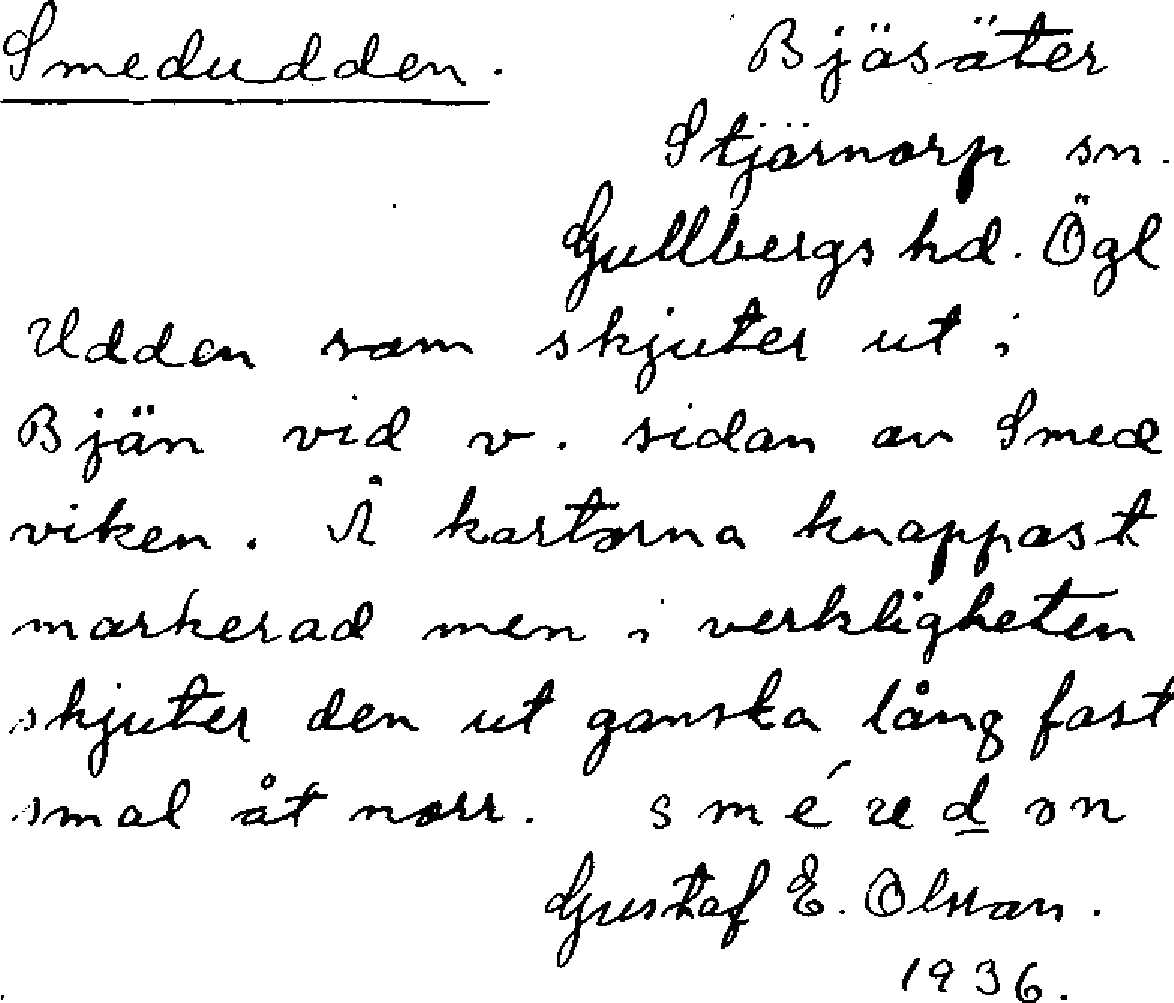 Smedudden. Bjäsäter
Stjärnorp sn.
Gullbergs hd. Ögl
Udden som skjuter ut i
Bjän vid v. sidan av Smed
viken. Å kartorna knappast
markerad men i verkligheten
skjuter den ut ganska lång fast
smal åt norr. sméuḏən
Gustaf E. Olsson.
1936.